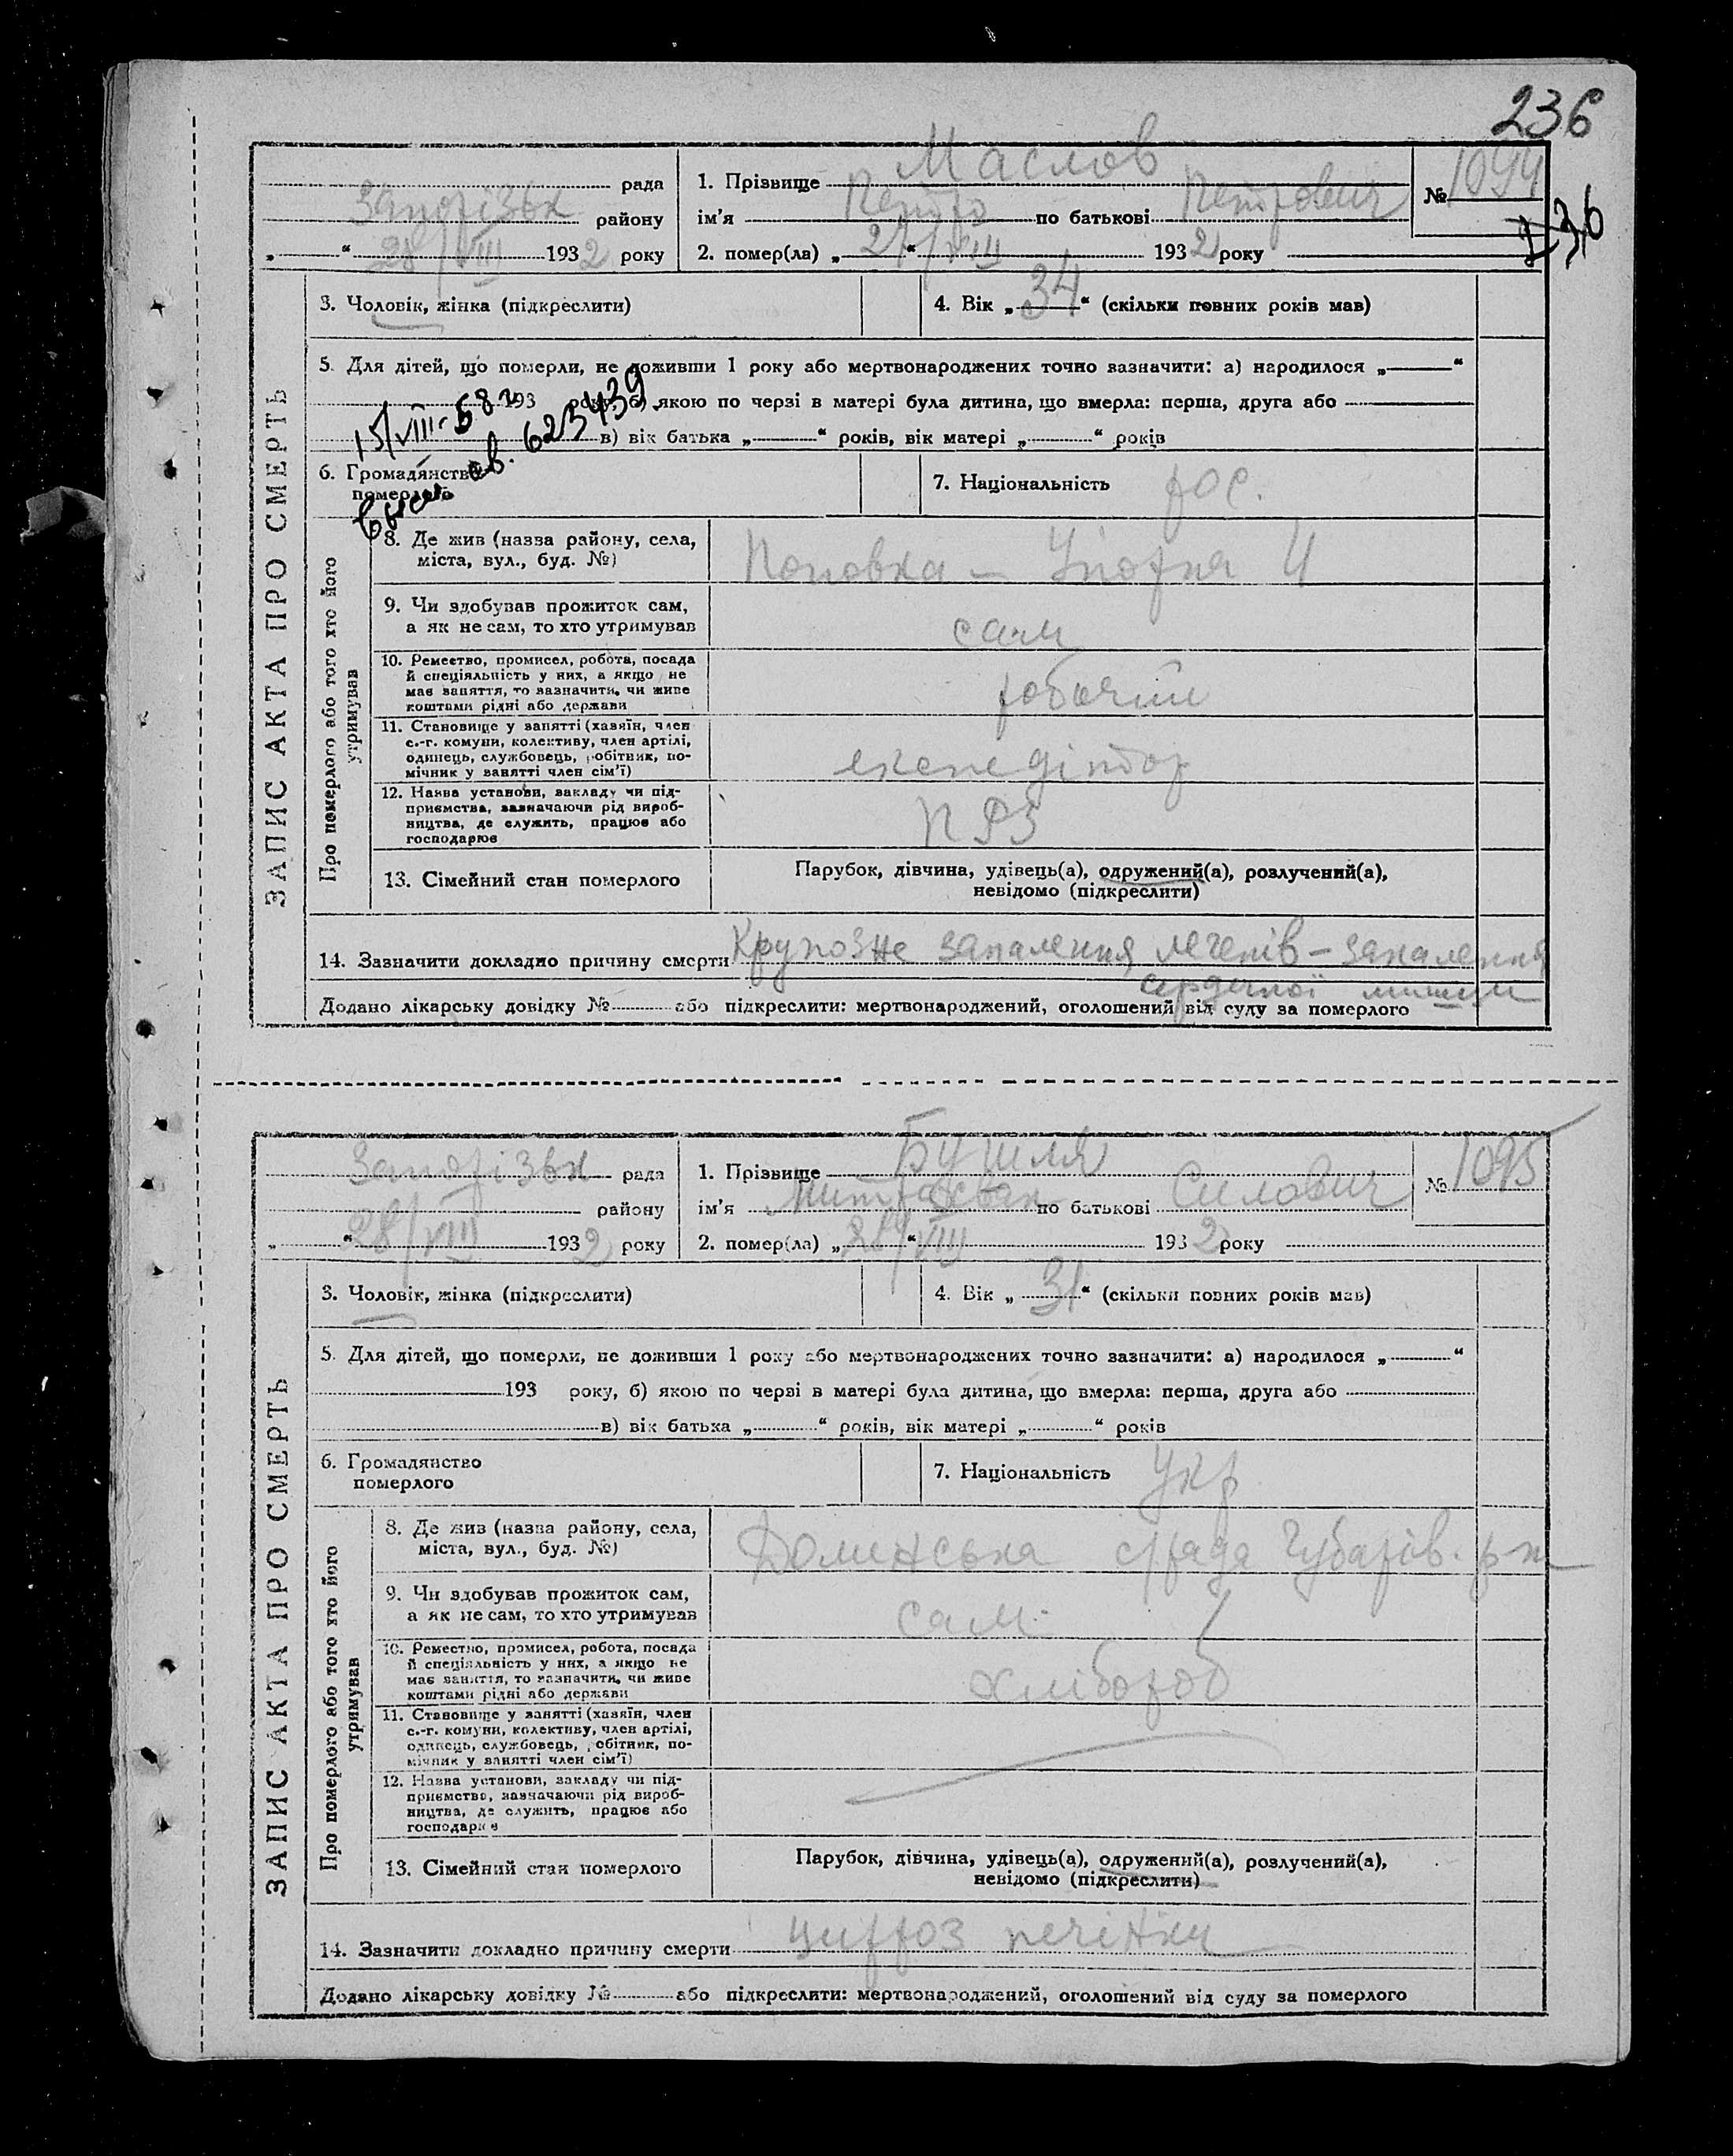 236
Маслов
рада 1. Прізвище № 1094
Запорізьк району ім'я Петро по батькові Петрович
236
„ “ 28/VIII 1932 року 2. помер(ла) „27/VIII“ 1932 року
3. Чоловік, жінка (підкреслити) 4. Вік „34“ (скільки повних років мав)
5. Для дітей, що померли, не доживши 1 року або мертвонароджених точно зазначити: а) народилося „ “
193 року, б) якою по черзі в матері була дитина, що вмерла: перша, друга або
в) вік батька „ “ років, вік матері „ “ років
15/VIII-58 г
св. 623439
6. Громадянство померлого 7. Національність рос.
ЗАПИС АКТА ПРО СМЕРТЬ
Про померлого або того хто його утримував
8. Де жив (назва району, села,
міста, вул., буд. №)
Поповка – Упорна 4
9. Чи здобував прожиток сам,
а як не сам, то хто утримував
сам
10. Ремество, промисел, робота, посада
й спеціяльність у них, а якщо не
має заняття, то зазначити, чи живе
коштами рідні або держави
робочий
11. Становище у занятті (хазяїн, член
с.-г. комуни, колективу, член артілі,
одинець, службовець, робітник, по-
мічник у занятті член сім'ї)
експедітор
12. Назва установи, закладу чи під-
приємства, зазначаючи рід вироб-
ництва, де служить, працює або
господарює
ПРЗ
13. Сімейний стан померлого
Парубок, дівчина, удівець(а), одружений(а), розлучений(а),
невідомо (підкреслити)
14. Зазначити докладно причину смерти Крупозне запалення легенів – запалення
сердечної мишци
Додано лікарську довідку № або підкреслити: мертвонароджений, оголошений від суду за померлого
Запорізьк рада 1. Прізвище Бушля № 1095
району ім'я Митрофан по батькові Силович
„ “ 28/VIII 1932 року 2. помер(ла) „28“/VIII 1932 року
3. Чоловік, жінка (підкреслити) 4. Вік „31“ (скільки повних років мав)
5. Для дітей, що померли, не доживши 1 року або мертвонароджених точно зазначити: а) народилося „ “
193 року, б) якою по черзі в матері була дитина, що вмерла: перша, друга або
в) вік батька „ “ років, вік матері „ “ років
6. Громадянство померлого 7. Національність Укр
ЗАПИС АКТА ПРО СМЕРТЬ
Про померлого або того хто його утримував
8. Де жив (назва району, села,
міста, вул., буд. №)
с/рада Губарів. р-н
9. Чи здобував прожиток сам,
а як не сам, то хто утримував
сам
10. Ремество, промисел, робота, посада
й спеціяльність у них, а якщо не
має заняття, то зазначити, чи живе
коштами рідні або держави
хлібороб
11. Становище у занятті (хазяїн, член
с.-г. комуни, колективу, член артілі,
одинець, службовець, робітник, по-
мічник у занятті член сім'ї)
12. Назва установи, закладу чи під-
приємства, зазначаючи рід вироб-
ництва, де служить, працює або
господарює
13. Сімейний стан померлого
Парубок, дівчина, удівець(а), одружений(а), розлучений(а),
невідомо (підкреслити)
14. Зазначити докладно причину смерти цирроз печінки
Додано лікарську довідку № або підкреслити: мертвонароджений, оголошений від суду за померлого